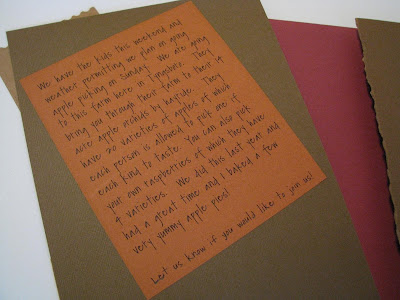 We have the kids this weekend and
weather permitting we plan on going
apple picking on Sunday. We are going
to this farm here in Tyngsboro. They
bring you through their farm to their 14
acre apple orchards by hayride. They
have 20 varieties of apples of which
each person is allowed to pick one of
each kind to taste. You can also pick
your own raspberries of which they have
4 varieties. We did this last year and
had a great time and I baked a few
very yummy apple pies!
Let us know if you would like to join us!